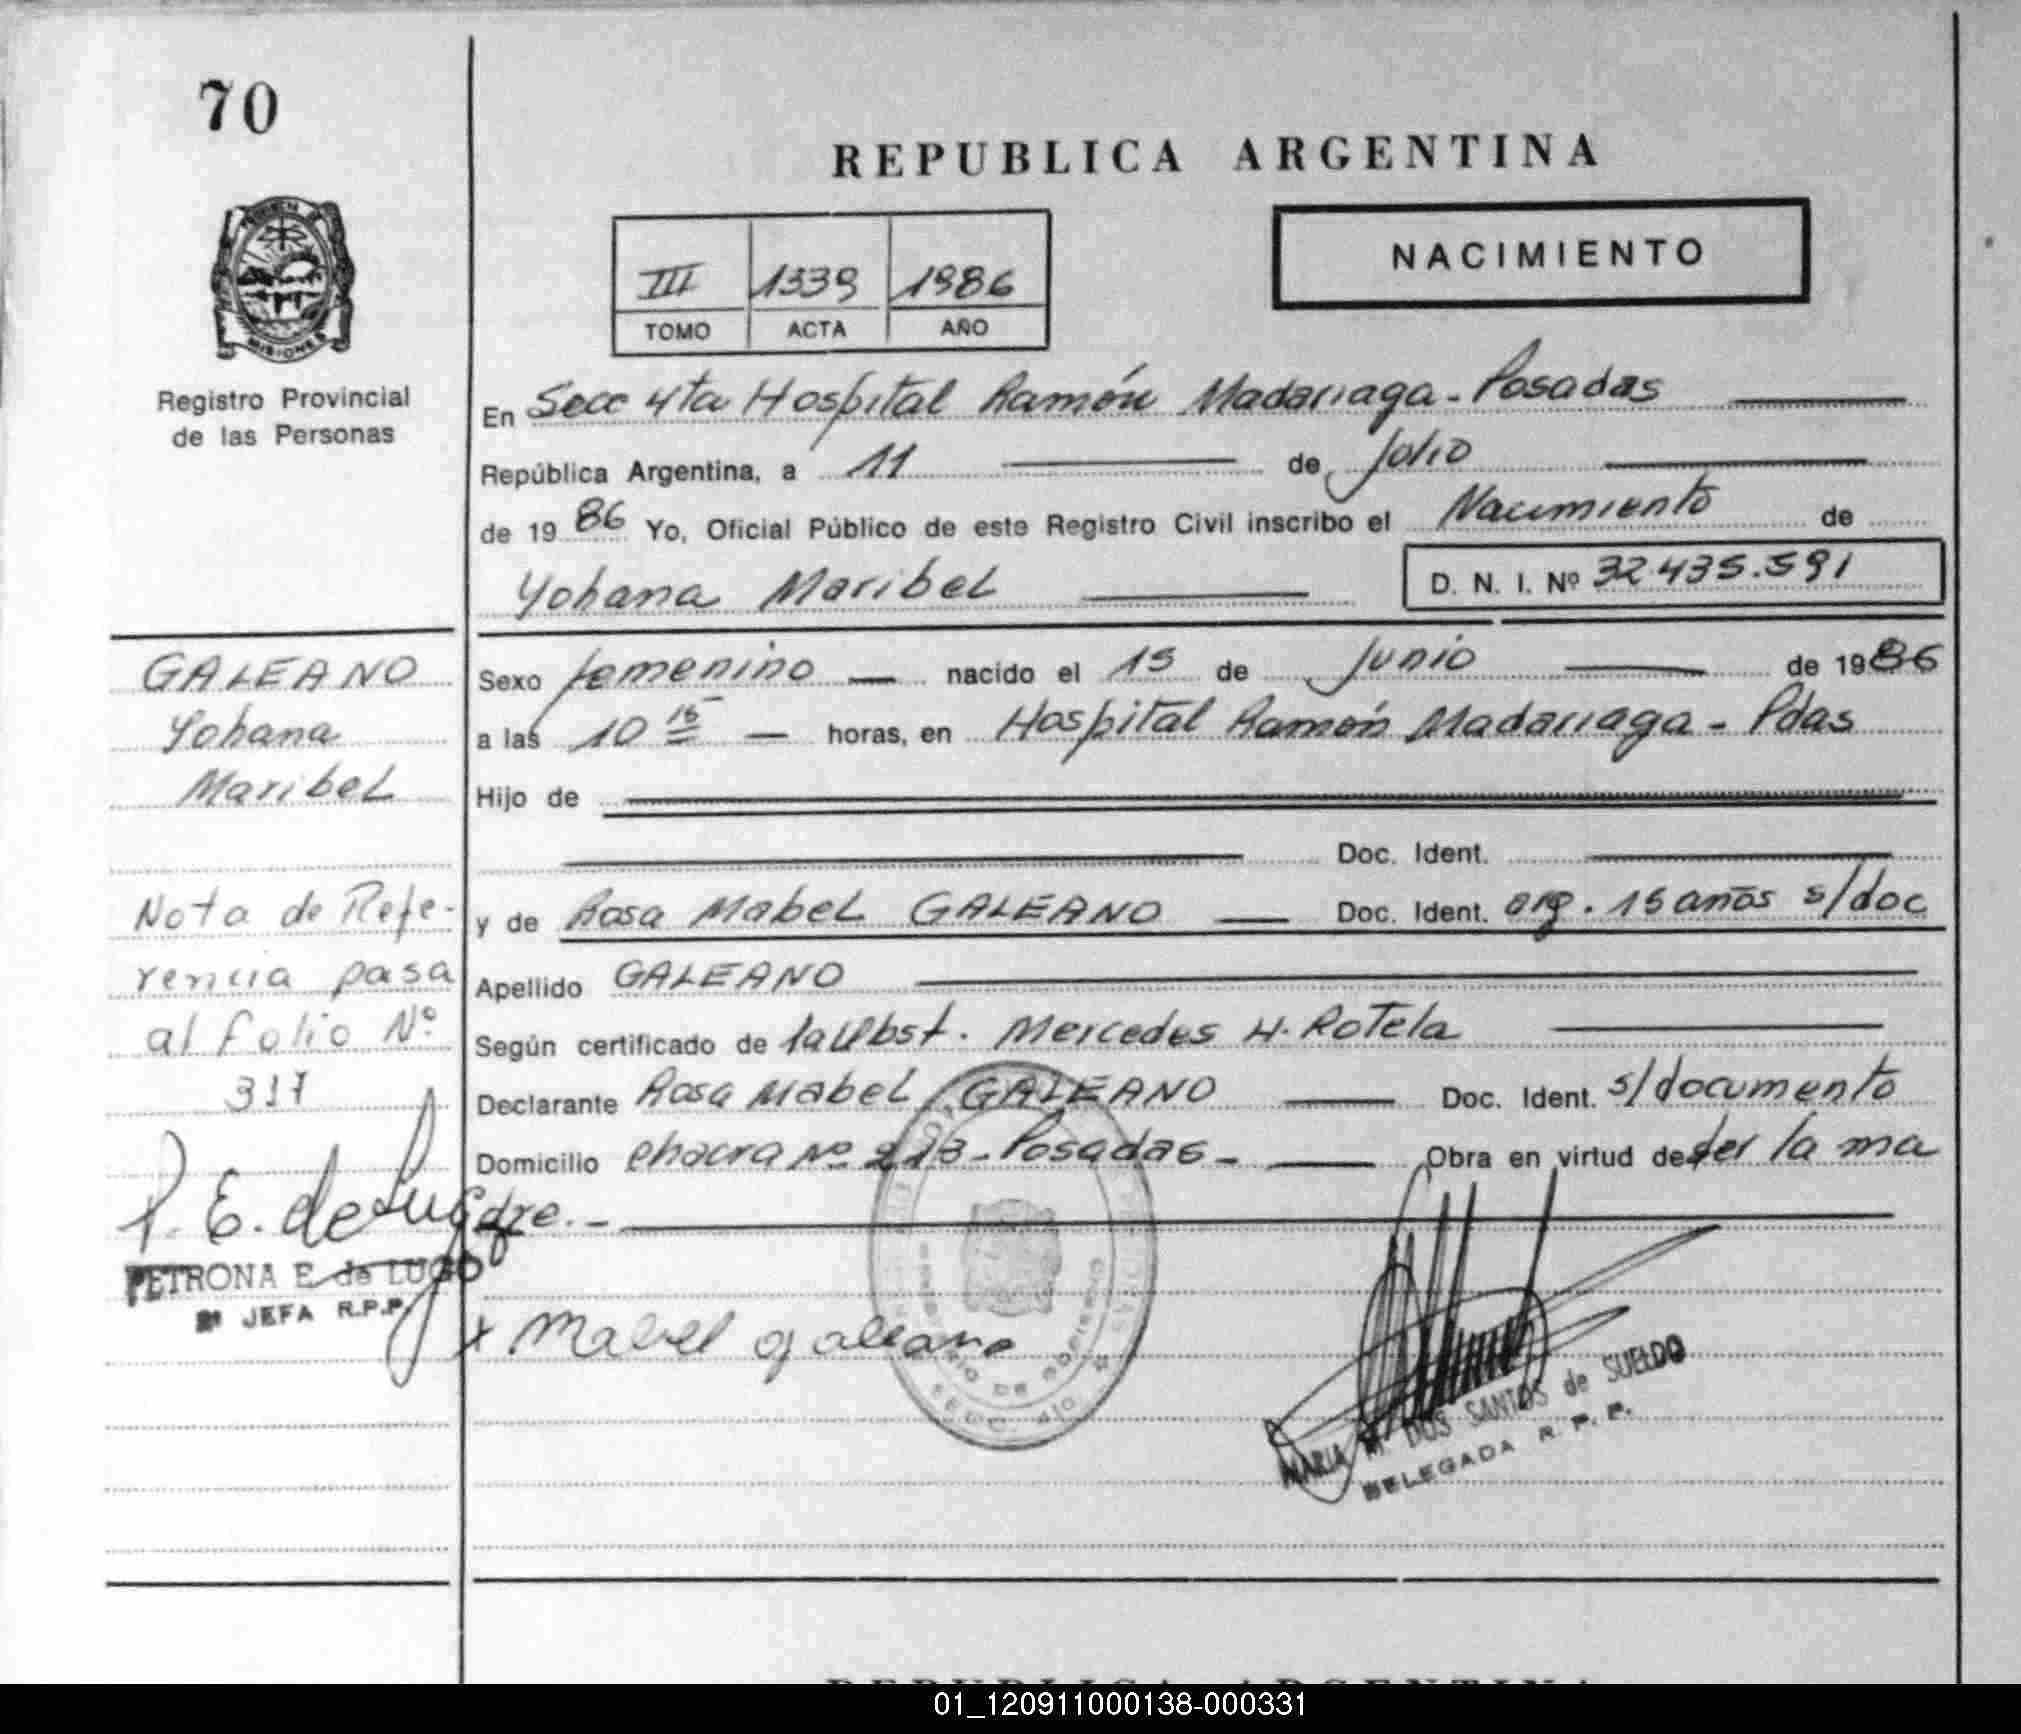 70
REPUBLICA ARGENTINA
NACIMIENTO
III 1339 1986
TOMO ACTA AÑO
MISIONES
Registro Provincial
de las Personas
En Secc 4ta Hospital Ramón Madariaga - Posadas
República Argentina, a 11 de Julio
de 1986 Yo, Oficial Público de este Registro Civil inscribo el Nacimiento de
Yohana Maribel D. N. I. Nº 32.435.591
GALEANO
Yohana
Maribel
Sexo femenino nacido el 15 de Junio de 1986
a las 10 15 horas, en Hospital Ramón Madariaga - Pdas
Hijo de
Doc. Ident.
y de Rosa Mabel GALEANO Doc. Ident. arg. 15 años s/doc
Apellido GALEANO
Según certificado de la Obst. Mercedes H. Rotela
Declarante Rosa Mabel GALEANO Doc. Ident. s/documento
Domicilio chacra Nº 213 - Posadas - Obra en virtud de ser la ma
dre. -
Nota de Refe-
rencia pasa
al folio Nº
317
P. E. de Lugo
PETRONA E. de LUGO
JEFA R.P.P.
x Mabel galeano
SECC. 4ta
MARIA M. DOS SANTOS de SUELDO
DELEGADA R. P. P.
REPUBLICA ARGENTINA
01_120911000138-000331